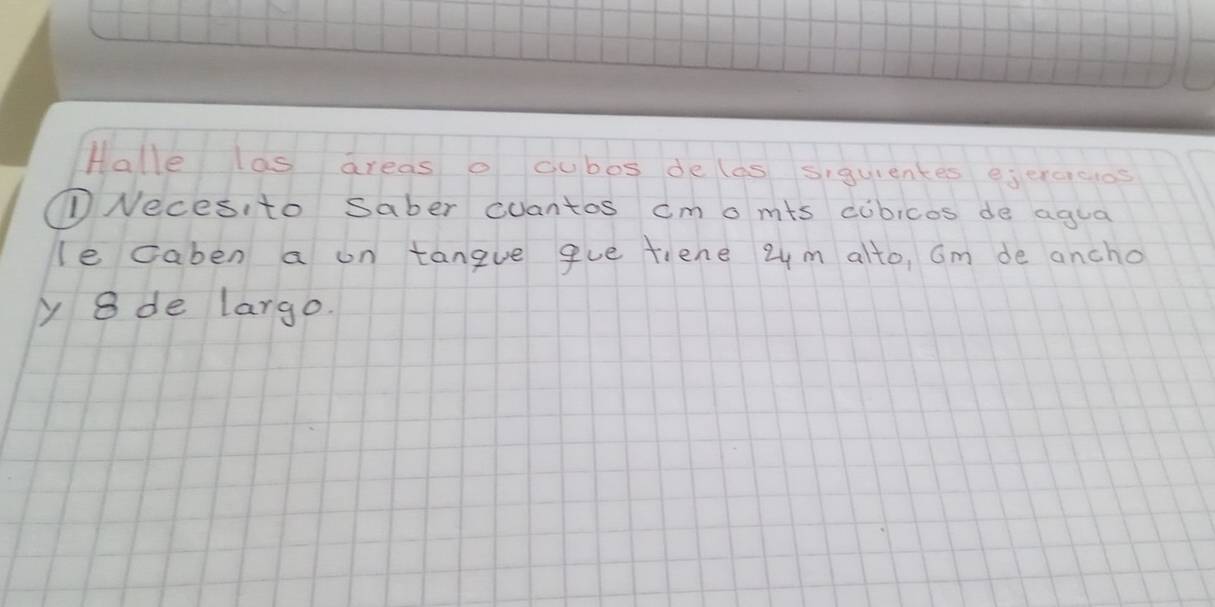 Halle las áreas o cubos de los siguientes ejercicios
① Necesito saber cuantos cm o mts cúbicos de agua
le caben a un tanque que tiene 24 m alto, 6m de ancho
y 8 de largo.